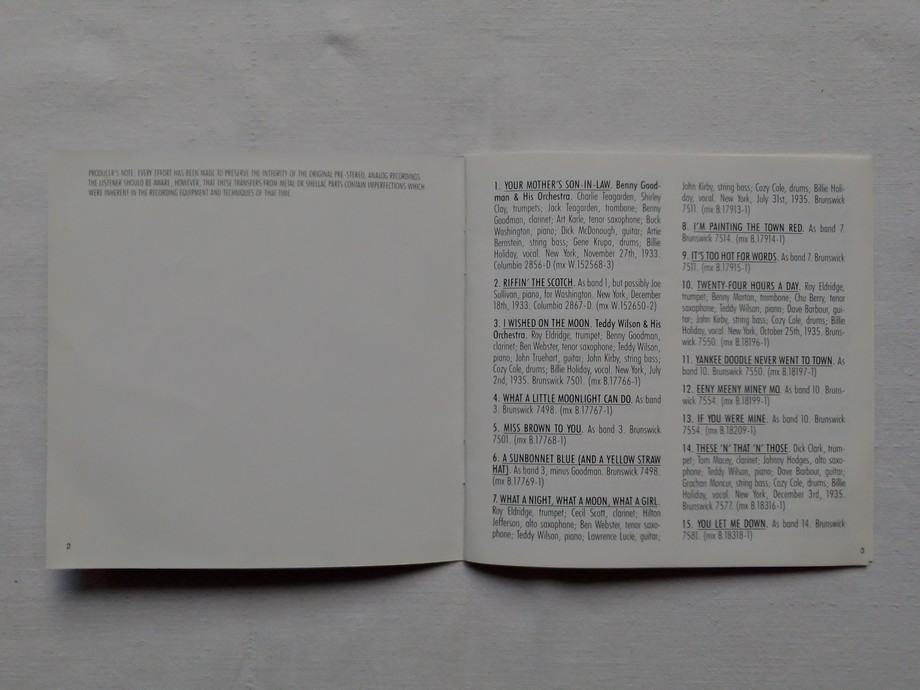 PRODUCER'S NOTE: EVERY EFFORT HAS BEEN MADE TO PRESERVE THE INTEGRITY OF THE ORIGINAL PRE-STEREO, ANALOG RECORDINGS.
THE LISTENER SHOULD BE AWARE, HOWEVER, THAT THESE TRANSFERS FROM METAL OR SHELLAC PARTS CONTAIN IMPERFECTIONS WHICH
WERE INHERENT IN THE RECORDING EQUIPMENT AND TECHNIQUES OF THAT TIME.
2
1. YOUR MOTHER'S SON-IN-LAW. Benny Good-
man & His Orchestra. Charlie Teagarden, Shirley
Clay, trumpets; Jack Teagarden, trombone; Benny
Goodman, clarinet; Art Karle, tenor saxophone; Buck
Washington, piano; Dick McDonough, guitar; Artie
Bernstein, string bass; Gene Krupa, drums; Billie
Holiday, vocal. New York, November 27th, 1933.
Columbia 2856-D (mx W.152568-3)
2. RIFFIN' THE SCOTCH. As band 1, but possibly Joe
Sullivan, piano, for Washington. New York, December
18th, 1933. Columbia 2867-D. (mx W.152650-2)
3. I WISHED ON THE MOON. Teddy Wilson & His
Orchestra. Roy Eldridge, trumpet; Benny Goodman,
clarinet; Ben Webster, tenor saxophone; Teddy Wilson,
piano; John Truehart, guitar; John Kirby, string bass;
Cozy Cole, drums; Billie Holiday, vocal. New York, July
2nd, 1935. Brunswick 7501. (mx B.17766-1)
4. WHAT A LITTLE MOONLIGHT CAN DO. As band
3. Brunswick 7498. (mx B.17767-1)
5. MISS BROWN TO YOU. As band 3. Brunswick
7501. (mx B.17768-1)
6. A SUNBONNET BLUE (AND A YELLOW STRAW
HAT). As band 3, minus Goodman. Brunswick 7498.
(mx B.17769-1)
7. WHAT A NIGHT, WHAT A MOON, WHAT A GIRL.
Roy Eldridge, trumpet; Cecil Scott, clarinet; Hilton
Jefferson, alto saxophone; Ben Webster, tenor saxo-
phone; Teddy Wilson, piano; Lawrence Lucie, guitar;
John Kirby, string bass; Cozy Cole, drums; Billie Holi-
day, vocal. New York, July 31st, 1935. Brunswick
7511. (mx B.17913-1)
8. I'M PAINTING THE TOWN RED. As band 7.
Brunswick 7514. (mx B.17914-1)
9. IT'S TOO HOT FOR WORDS. As band 7. Brunswick
7511. (mx B.17915-1)
10. TWENTY-FOUR HOURS A DAY. Roy Eldridge,
trumpet; Benny Morton, trombone; Chu Berry, tenor
saxophone; Teddy Wilson, piano; Dave Barbour, gui-
tar; John Kirby, string bass; Cozy Cole, drums; Billie
Holiday, vocal. New York, October 25th, 1935. Bruns-
wick 7550. (mx B.18196-1)
11. YANKEE DOODLE NEVER WENT TO TOWN. As
band 10. Brunswick 7550. (mx B.18197-1)
12. EENY MEENY MINEY MO. As band 10. Bruns-
wick 7554. (mx B.18199-1)
13. IF YOU WERE MINE. As band 10. Brunswick
7554. (mx B.18209-1)
14. THESE 'N' THAT 'N' THOSE. Dick Clark, trum-
pet; Tom Macey, clarinet; Johnny Hodges, alto saxo-
phone; Teddy Wilson, piano; Dave Barbour, guitar;
Grachan Moncur, string bass; Cozy Cole, drums; Billie
Holiday, vocal. New York, December 3rd, 1935.
Brunswick 7577. (mx B.18316-1)
15. YOU LET ME DOWN. As band 14. Brunswick
7581. (mx B.18318-1)
3